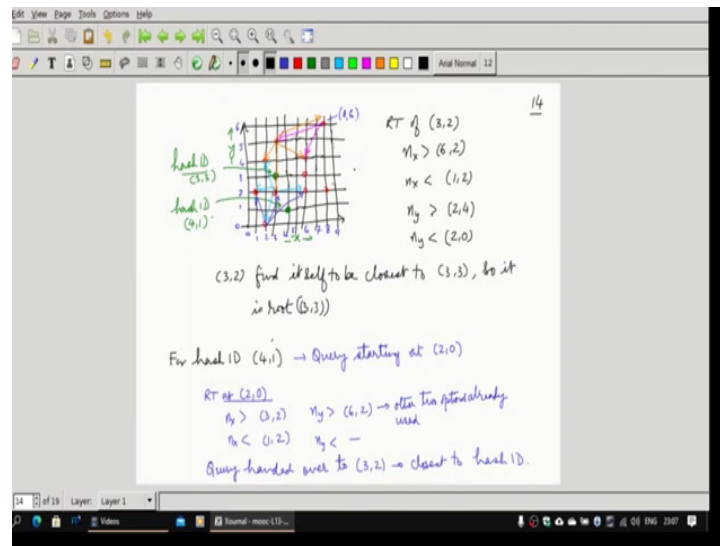 Edit View Page Tools Options Help
Arial Normal 12
14
(8,6)
RT of (3,2)
nx > (6,2)
nx < (1,2)
ny > (2,4)
ny < (2,0)
hash ID
(3,3)
hash ID
(4,1)
6
5
4
3
2
1
0
y
0 1 2 3 4 5 6 7 8 9
x
(3,2) find itself to be closest to (3,3), so it
is root (3,3))
For hash ID (4,1) → Query starting at (2,0)
RT of (2,0)
nx > (3,2) ny > (6,2) → other two options already
used
nx < (1,2) ny < —
Query handed over to (3,2) → closest to hash ID.
14 of 19 Layer: Layer 1
Videos Xournal - mooc-L13-... ENG 2307